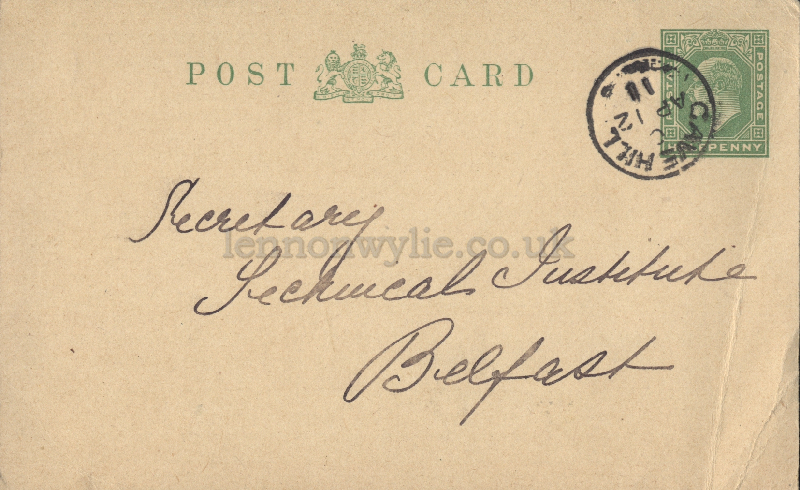 POST CARD
POSTAGE
HALFPENNY
CAVE HILL
AP 12
11
Secretary
lennonwylie.co.uk
Technical Institute
Belfast